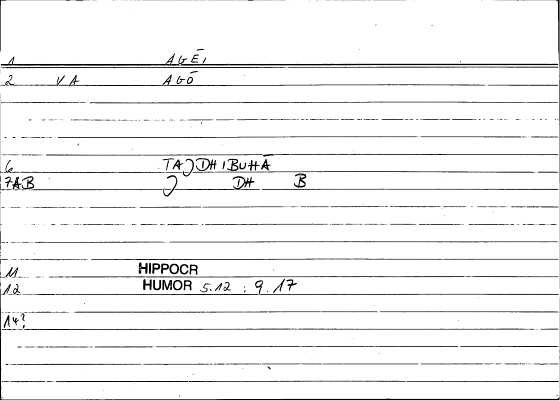 1 AGĒI
2 VA AGŌ
6 TAJDHIBUHĀ
7AB J DH B
11 HIPPOCR
12 HUMOR 5.12 : 9.17
14?